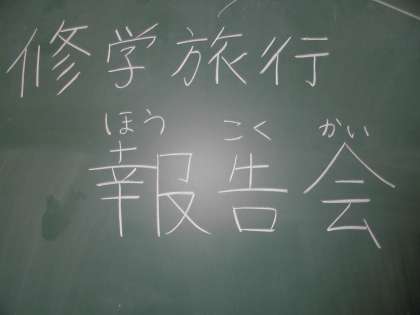 修学旅行
ほう こく かい
報告会